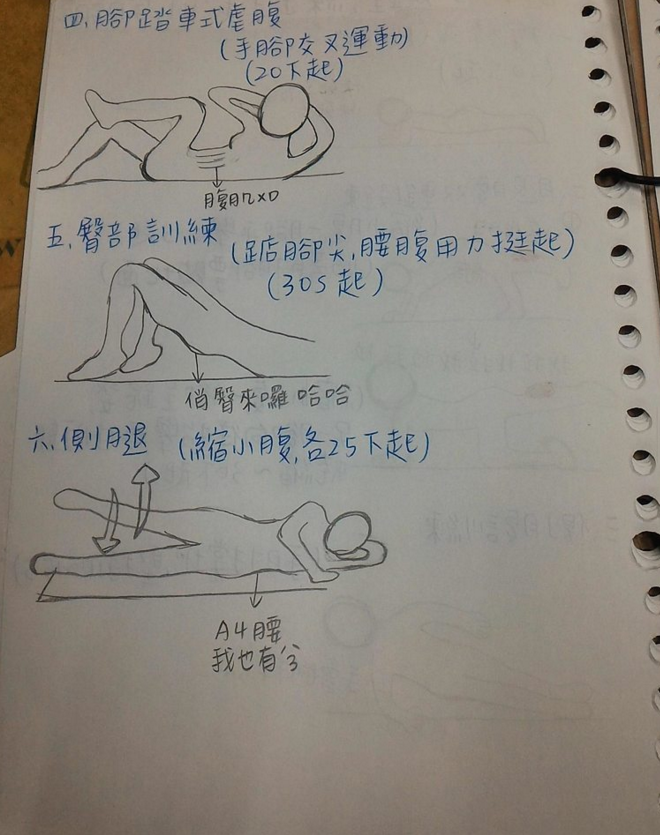 四.腳踏車式虐腹
(手腳交叉運動)
(20下起)
腹肌XD
五.臀部訓練 (踮腳尖,腰腹用力挺起)
(30S起)
俏臀來囉哈哈
六.側腿 (縮小腹,各25下起)
A4腰
我也有分